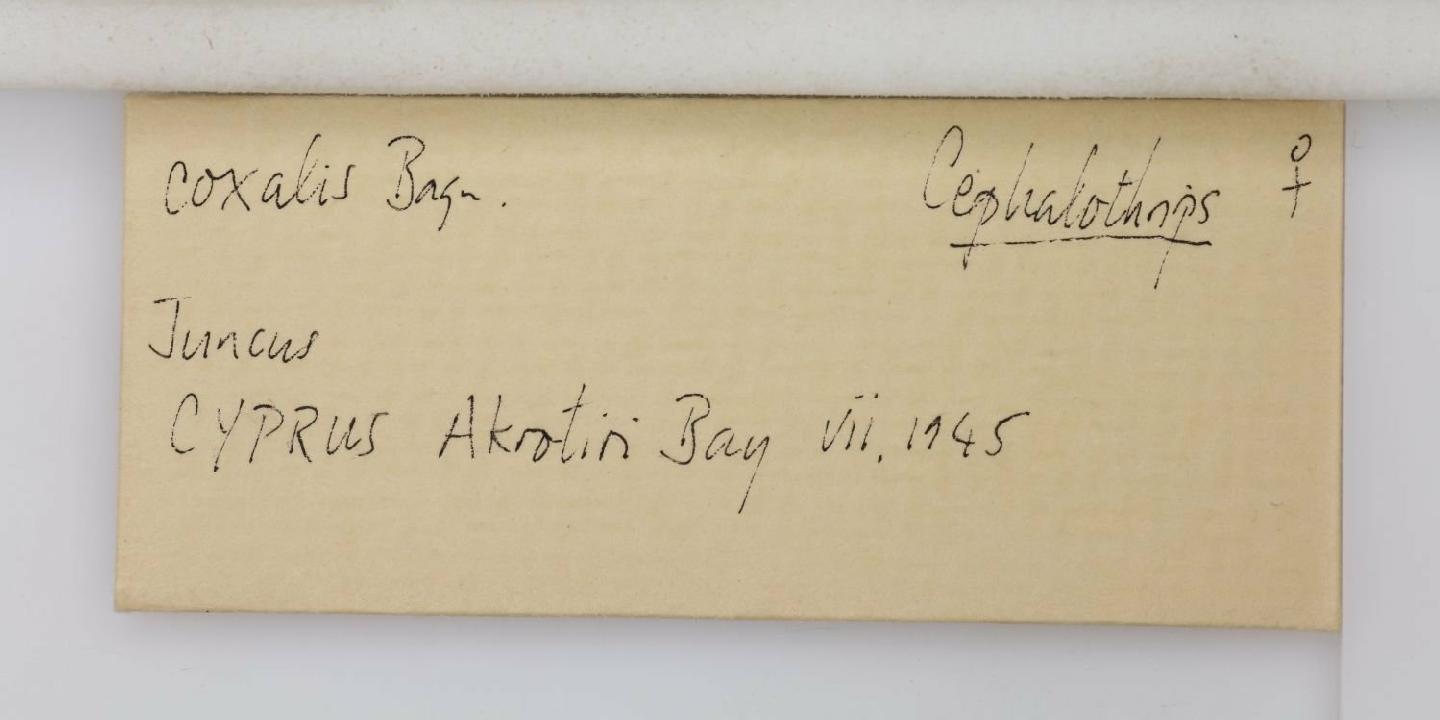 coxalis Bagn. Cephalothrips ♀
Juncus
CYPRUS Akrotiri Bay vii. 1945